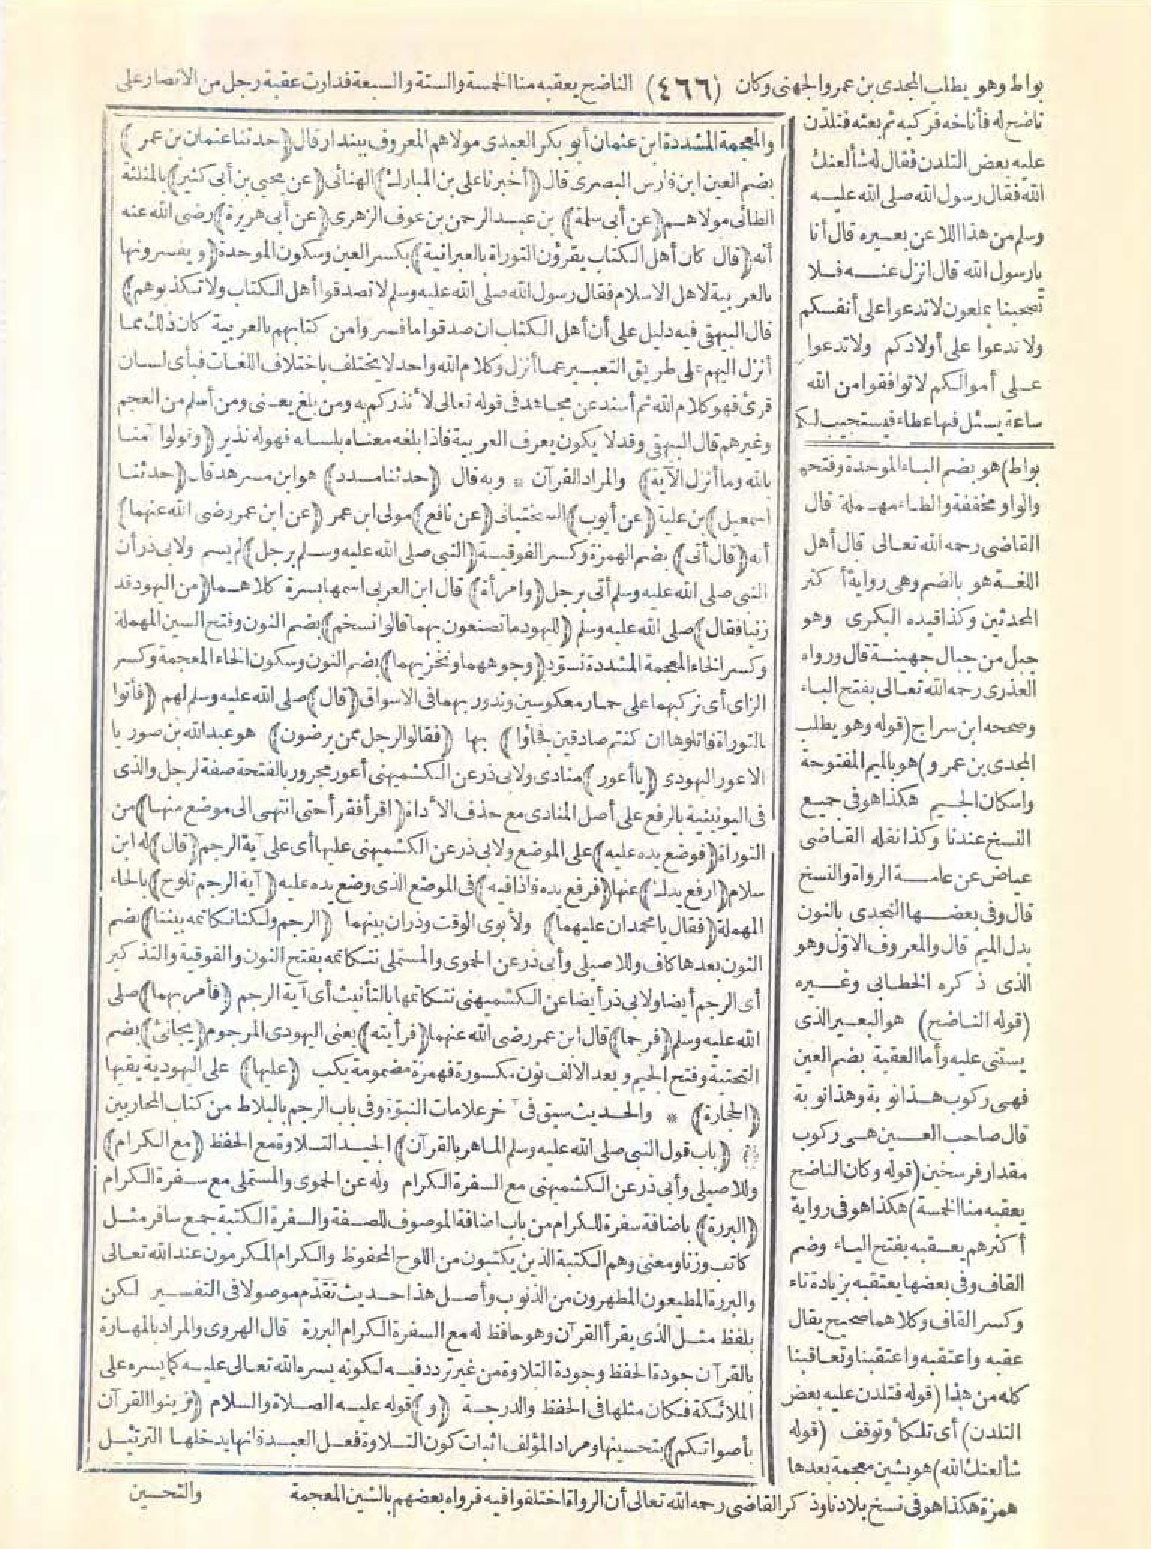 بواط وهو يطلب المجدى بن عمرو الجهنى وكان (٤٦٦) الناضح يعقبه منا الخمسة والستة والسبعة فدارت عقبة رجل من الانصار على
ناضح له فأناخه فركبه ثم بعثه فتلدن
عليه بعض التلدن فقال له شألعنك
الله فقال رسول الله صلى الله عليه
وسلم من هذا اللاعن بعيره قال أنا
يارسول الله قال انزل عنه فلا
تصحبنا بملعون لاتدعوا على أنفسكم
ولا تدعوا على أولادكم ولا تدعوا
على أموالكم لا توافقوا من الله
ساعة يسئل فيها عطاء فيستجيب لكم
بواط) هو بضم الباء الموحدة وفتحها
والواو مخففة والطاء مهملة قال
القاضى رحمه الله تعالى قال أهل
اللغة هو بالضم وهى رواية أكثر
المحدثين وكذا قيده البكرى وهو
جبل من جبال جهينة قال ورواه
العذرى رحمه الله تعالى بفتح الباء
وصححه ابن سراج (قوله وهو يطلب
المجدى بن عمرو) هو بالميم المفتوحة
واسكان الجيم هكذا هو فى جميع
النسخ عندنا وكذا نقله القاضى
عياض عن عامة الرواة والنسخ
قال وفى بعضها النجدى بالنون
بدل الميم قال والمعروف الاول وهو
الذى ذكره الخطابى وغيره
(قوله الناضح) هو البعير الذى
يستقى عليه وأما العقبة بضم العين
فهى ركوب هذا نوبة وهذا نوبة
قال صاحب العين هى ركوب
مقدار فرسخين (قوله وكان الناضح
يعقبه منا الخمسة) هكذا هو فى رواية
أكثرهم يعقبه بفتح الياء وضم
القاف وفى بعضها يعتقبه بزيادة تاء
وكسر القاف وكلاهما صحيح يقال
عقبه واعتقبه واعتقبنا وتعاقبنا
كله من هذا (قوله فتلدن عليه بعض
التلدن) أى تلكأ وتوقف (قوله
شألعنك الله) هو بشين معجمة بعدها
همزة هكذا هو فى نسخ بلادنا وذكر القاضى رحمه الله تعالى أن الرواة اختلفوا فيه فرواه بعضهم بالشين المعجمة
والمعجمة المشددة ابن عثمان أبو بكر العبدى مولاهم المعروف ببندار قال (حدثنا عثمان بن عمر)
بضم العين ابن فارس البصرى قال (أخبرنا على بن المبارك) الهنائى (عن يحيى بن أبى كثير) بالمثلثة
الطائى مولاهم (عن أبى سلمة) بن عبد الرحمن بن عوف الزهرى (عن أبى هريرة) رضى الله عنه
أنه (قال كان أهل الكتاب يقرؤن التوراة بالعبرانية) بكسر العين وسكون الموحدة (ويفسرونها
بالعربية لاهل الاسلام فقال رسول الله صلى الله عليه وسلم لا تصدقوا أهل الكتاب ولا تكذبوهم)
قال البيهقى فيه دليل على أن أهل الكتاب ان صدقوا ما فسروا من كتابهم بالعربية كان ذلك مما
أنزل اليهم على طريق التعبير عما أنزل وكلام الله واحد لا يختلف باختلاف اللغات فبأى لسان
قرئ فهو كلام الله ثم أسند عن مجاهد فى قوله تعالى لأنذركم به ومن بلغ يعنى ومن أسلم من العجم
وغيرهم قال البيهقى وقد لا يكون يعرف العربية فاذا بلغه معناه بلسانه فهو له نذير (وقولوا آمنا
بالله وما أنزل الآية) والمراد القرآن * وبه قال (حدثنا مسدد) هو ابن مسرهد قال (حدثنا
اسمعيل) بن علية (عن أيوب) السختيانى (عن نافع) مولى ابن عمر (عن ابن عمر رضى الله عنهما)
أنه (قال أتى) بضم الهمزة وكسر الفوقية (النبى صلى الله عليه وسلم برجل) لم يسم ولابى ذر أن
النبى صلى الله عليه وسلم أتى برجل (وامرأة) قال ابن العربى اسمها بسرة كلاهما (من اليهود قد
زنيا فقال) صلى الله عليه وسلم (لليهود ما تصنعون بهما قالوا نسخم) بضم النون وفتح السين المهملة
وكسر الخاء المعجمة المشددة نسود (وجوههما ونخزيهما) بضم النون وسكون الخاء المعجمة وكسر
الزاى أى نركبهما على حمار معكوسين وندور بهما فى الاسواق (قال) صلى الله عليه وسلم لهم (فأتوا
بالتوراة فاتلوها ان كنتم صادقين فجاؤا) بها (فقالوا لرجل ممن يرضون) هو عبد الله بن صوريا
الاعور اليهودى (ياأعور) منادى ولابى ذر عن الكشميهنى أعور مجرور بالفتحة صفة لرجل والذى
فى اليونينية بالرفع على أصل المنادى مع حذف الأداة (اقرأ فقرأ حتى انتهى الى موضع منها) من
التوراة (فوضع يده عليه) على الموضع ولابى ذر عن الكشميهنى عليها أى على آية الرجم (قال) له ابن
سلام (ارفع يدك) عنها (فرفع يده فاذا فيه) فى الموضع الذى وضع يده عليه (آية الرجم تلوح) بالحاء
المهملة (فقال يا محمد ان عليهما) ولأبوى الوقت وذر ان بينهما (الرجم ولكنا نكاتمه بيننا) بضم
النون بعدها كاف وللاصيلى وأبى ذر عن الحموى والمستملى نتكاتمه بفتح النون والفوقية والتذكير
أى الرجم أيضا ولابى ذر أيضا عن الكشميهنى نتكاتمها بالتأنيث أى آية الرجم (فأمر بهما) صلى
الله عليه وسلم (فرجما) قال ابن عمر رضى الله عنهما (فرأيته) يعنى اليهودى المرجوم (يجانئ) بضم
التحتية وفتح الجيم وبعد الالف نون مكسورة فهمزة مضمومة يكب (عليها) على اليهودية يقيها
(الحجارة) * والحديث سبق فى آخر علامات النبوة وفى باب الرجم بالبلاط من كتاب المحاربين
(باب قول النبى صلى الله عليه وسلم الماهر بالقرآن) الجيد التلاوة مع الحفظ (مع الكرام)
وللاصيلى وأبى ذر عن الكشميهنى مع السفرة الكرام وله عن الحموى والمستملى مع سفرة الكرام
(البررة) باضافة سفرة للكرام من باب اضافة الموصوف للصفة والسفرة الكتبة جمع سافر مثل
كاتب وزنا ومعنى وهم الكتبة الذين يكتبون من اللوح المحفوظ والكرام المكرمون عند الله تعالى
والبررة المطيعون المطهرون من الذنوب وأصل هذا حديث تقدم موصولا فى التفسير لكن
بلفظ مثل الذى يقرأ القرآن وهو حافظ له مع السفرة الكرام البررة قال الهروى والمراد بالمهارة
بالقرآن جودة الحفظ وجودة التلاوة من غير تردد فيه لكونه يسره الله تعالى عليه كما يسره على
الملائكة فكان مثلها فى الحفظ والدرجة (و) قوله عليه الصلاة والسلام (زينوا القرآن
بأصواتكم) بتحسينها ومراد المؤلف اثبات كون التلاوة فعل العبد فانها يدخلها الترتيل
والتحسين